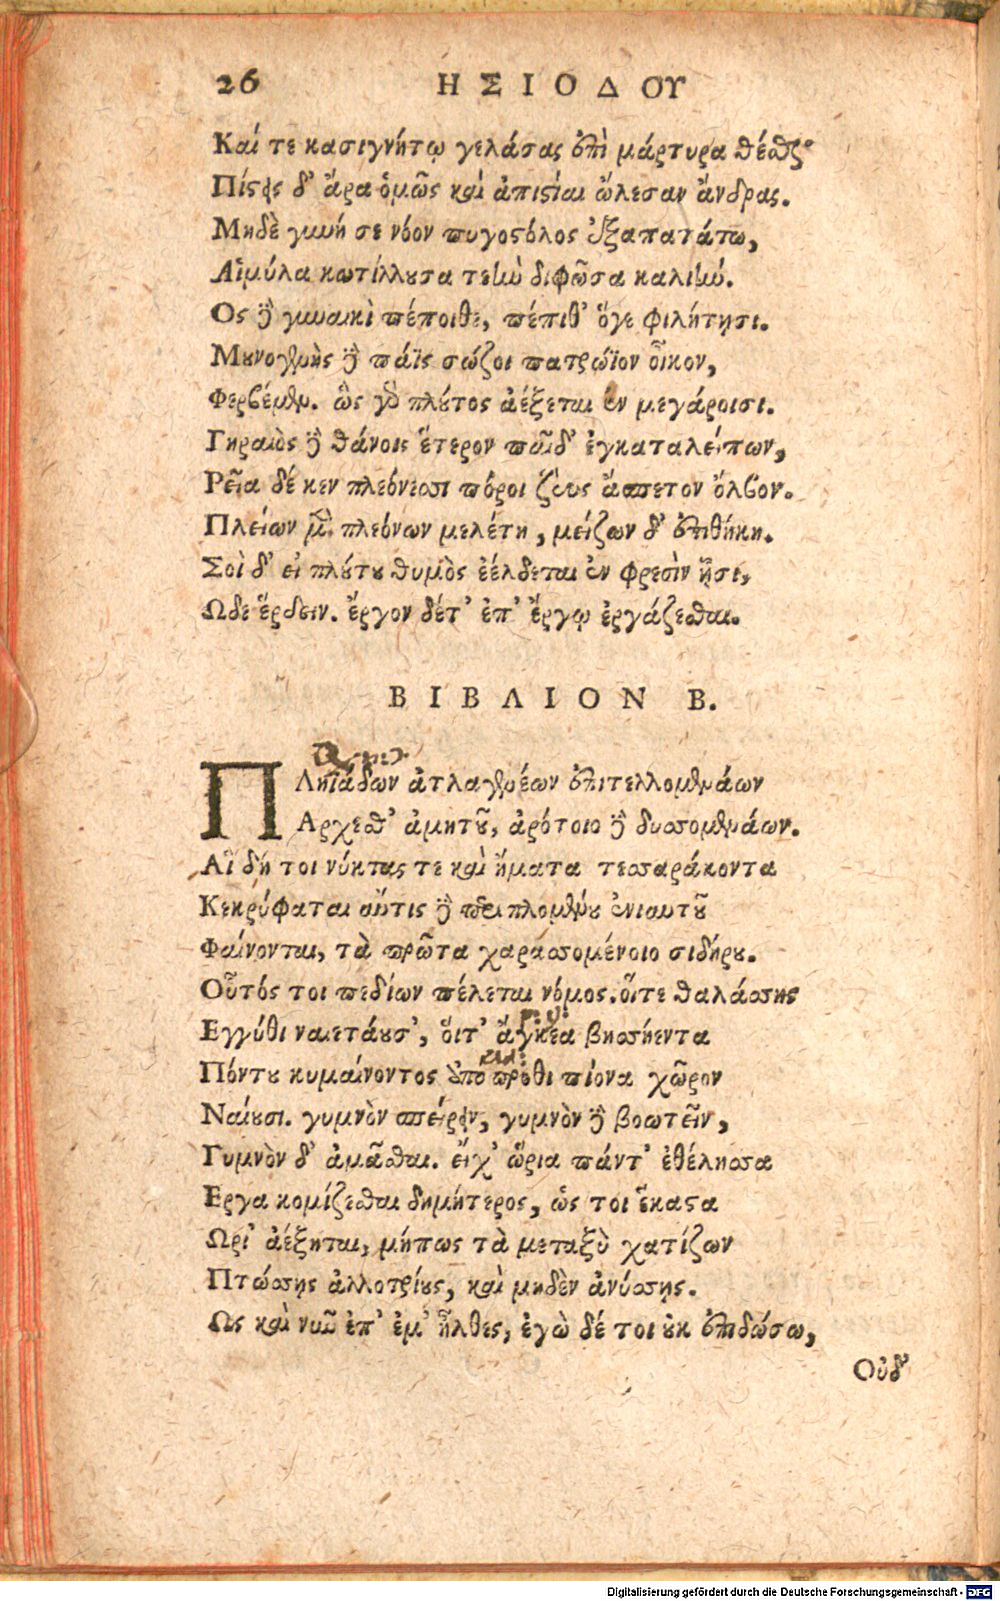 26 ΗΣΙΟΔΟΥ
Καί τε κασιγνήτῳ γελάσας ἐπὶ μάρτυρα θέσθαι·
Πίστεις δ' ἄρα ὁμῶς καὶ ἀπιστίαι ὤλεσαν ἄνδρας.
Μηδὲ γυνή σε νόον πυγοστόλος ἐξαπατάτω,
Αἱμύλα κωτίλλουσα τεὴν διφῶσα καλιήν.
Ος δὲ γυναικὶ πέποιθε, πέπιθ' ὅγε φιλήτῃσι.
Μουνογενὴς δὲ πάϊς σώζοι πατρώϊον οἶκον,
Φερβέμεν. ὣς γὰρ πλοῦτος ἀέξεται ἐν μεγάροισι.
Γηραιὸς δὲ θάνοις ἕτερον παῖδ' ἐγκαταλείπων,
Ρεῖα δέ κεν πλεόνεσσι πόροι ζεὺς ἄσπετον ὄλβον.
Πλείων μὲν πλεόνων μελέτη, μείζων δ' ἐπιθήκη.
Σοὶ δ' εἰ πλούτου θυμὸς ἐέλδεται ἐν φρεσὶν ᾗσι,
Ωδε ἕρδειν. ἔργον δέτ' ἐπ' ἔργῳ ἐργάζεσθαι.
ΒΙΒΛΙΟΝ Β.
ΠΛηϊάδων ἀτλαγενέων ἐπιτελλομενάων
Αρχεσθ' ἀμητοῦ, ἀρότοιο δὲ δυσσομενάων.
Αἳ δή τοι νύκτας τε καὶ ἤματα τεσσαράκοντα
Κεκρύφαται αὖτις δὲ περιπλομένου ἐνιαυτοῦ
Φαίνονται, τὰ πρῶτα χαρασσομένοιο σιδήρου.
Οὗτός τοι πεδίων πέλεται νόμος. οἵτε θαλάσσης
Εγγύθι ναιετάουσ', οἵτ' ἄγκεα βησσήεντα
Πόντου κυμαίνοντος ἀπο πρόθι πίονα χῶρον
Ναίουσι. γυμνὸν σπείρειν, γυμνὸν δὲ βοωτεῖν,
Γυμνὸν δ' ἀμᾶσθαι. εἴχ' ὥρια πάντ' ἐθέλησθα
Εργα κομίζεσθαι δημήτερος, ὥς τοι ἕκαστα
Ωρι' ἀέξηται, μήπως τὰ μεταξὺ χατίζων
Πτώσσῃς ἀλλοτρίους, καὶ μηδὲν ἀνύσσῃς.
Ως καὶ νῦν ἐπ' ἐμ' ἦλθες, ἐγὼ δέ τοι οὐκ ἐπιδώσω,
Οὐδ'
Digitalisierung gefördert durch die Deutsche Forschungsgemeinschaft - DFG